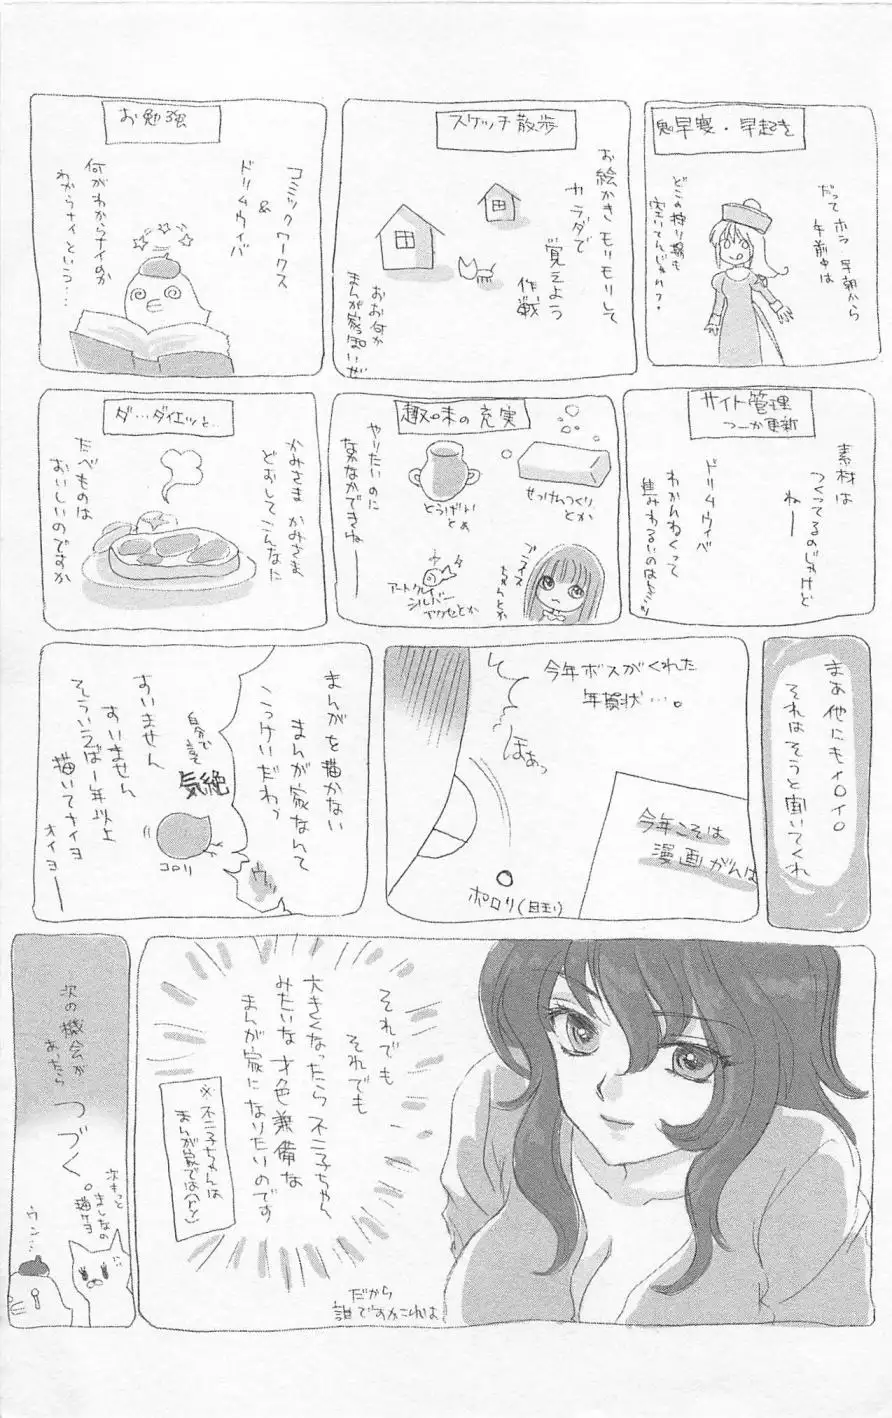 早寝・早起き
だって ホラ 早朝から
午前中は
どこの狩り場も
空いてんじゃん?・
スケッチ散歩
お絵かき モリモリして
カラダで
覚えよう
作戦
おお何か
まんが家っぽいぜ
お勉強
コミックワークス
&
ドリムウィバ
何がわからナイのか
わからナイという…
サイト管理
つーか更新
素材は
つくってるのじゃけど
ねー
ドリムウィバ
わかんねくって
趣味の充実
せっけんつくり
とか
とうげい
とか
やりたいのに
なかなかできねー
アートクレイ
シルバー
アクセとか
ダ…ダイエッと…
かみさま かみさま
どおしてこんなに
たべものは
おいしいのですか
まあ他にもイロイロ
それはそうと聞いてくれ
今年ボスがくれた
年賀状…。
ほあっ
今年こそは
漫画がんば
ポロリ(目玉)
まんがを描かない
まんが家なんて
こっけいだわっ
ウッ
自分で
言って
気絶
コロリ
すいません
すいません
そういえば1年以上
描いてナイヨ
オイヨー
それでも
それでも
大きくなったら不二子ちゃん
みたいな才色兼備な
まんが家になりたいのです
※不二子ちゃんは
まんが家ではナイ
だから
誰ですかこれは
次の機会が
あったら
つづく
次もっと
ましなの
描ケヨ
ウン…